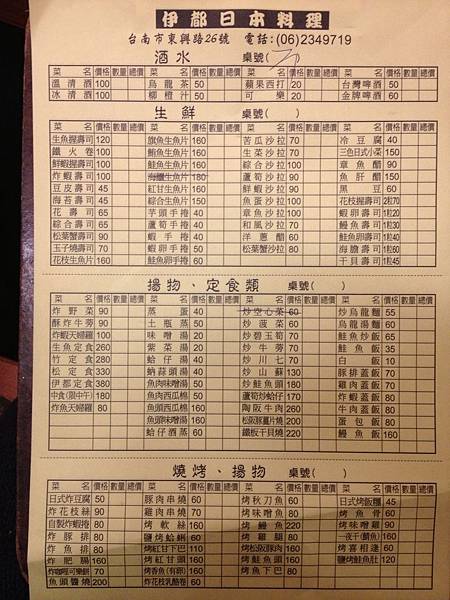 伊都日本料理
台南市東興路26號 電話:(06)2349719
酒水 桌號( )
菜名 價格 數量 總價 菜名 價格 數量 總價 菜名 價格 數量 總價 菜名 價格 數量 總價
溫清酒 100 烏龍茶 50 蘋果西打 20 台灣啤酒 50
冰清酒 100 柳橙汁 50 可樂 20 金牌啤酒 60
生鮮 桌號( )
菜名 價格 數量 總價 菜名 價格 數量 總價 菜名 價格 數量 總價 菜名 價格 數量 總價
生魚握壽司 120 旗魚生魚片 160 苦瓜沙拉 70 冷豆腐 40
鐵火卷 100 鮪魚生魚片 160 生菜沙拉 70 三色日式小菜 150
鮮蝦握壽司 100 鮭魚生魚片 160 綜合沙拉 100 章魚醋 90
炸蝦壽司 100 海鱺生魚片 180 蘆筍沙拉 90 魚肝醋 180
豆皮壽司 45 紅甘生魚片 160 鮮蝦沙拉 90 黑豆 60
海苔壽司 45 綜合生魚片 150 魚蛋沙拉 100 花枝握壽司 2粒70
花壽司 65 芋頭手捲 40 章魚沙拉 100 蝦卵壽司 1粒20
綜合壽司 65 蘆筍手捲 40 和風沙拉 70 鰻魚壽司 1粒30
松葉蟹壽司 90 蝦手捲 40 洋蔥醋 60 鮭魚卵壽司 1粒60
玉子燒壽司 70 鮭魚卵手捲 90 松葉蟹沙拉 90 海膽壽司 1粒60
花枝生魚片 160 蝦卵手捲 60 干貝壽司 1粒45
揚物、定食類 桌號( )
菜名 價格 數量 總價 菜名 價格 數量 總價 菜名 價格 數量 總價 菜名 價格 數量 總價
炸野菜 90 蒸蛋 40 炒空心菜 60 炒烏龍麵 55
酥炸牛蒡 90 土瓶蒸 50 炒菠菜 60 烏龍湯麵 60
炸蝦天婦羅 60 味噌湯 20 炒碧玉筍 70 鮭魚炒飯 65
生魚定食 260 紫菜湯 20 炒牛蒡 70 鮭魚飯 35
竹定食 280 蛤仔湯 40 炒川七 70 白飯 10
松定食 330 蚋蒜頭湯 40 炒山蘇 130 豚排蓋飯 80
伊都定食 380 魚肉味噌湯 50 炒鮭魚頭 180 雞肉蓋飯 80
中食(限中午) 180 魚肉西瓜綿 50 蘆筍炒蛤仔 170 炸蝦蓋飯 80
炸魚天婦羅 60 魚頭西瓜綿 160 陶阪牛肉 260 牛肉蓋飯 80
魚頭味噌湯 160 松阪豚薑片燒 200 蛋包飯 80
蛤仔酒蒸 60 鐵板干貝燒 220 鰻魚飯 160
燒烤、揚物 桌號( )
菜名 價格 數量 總價 菜名 價格 數量 總價 菜名 價格 數量 總價 菜名 價格 數量 總價
日式炸豆腐 50 豚肉串燒 60 烤秋刀魚 60 日式烤飯糰 45
炸花枝絲 90 雞肉串燒 60 烤味噌魚 80 烤魚骨 60
自製炸蝦捲 80 烤軟絲 160 烤鰻魚 220 烤味噌雞 90
炸豚排 80 鹽烤蛤蜊 60 烤雞腿 80 一夜干(鯖魚) 160
炸魚排 80 烤紅甘下巴 110 烤松阪豚肉 160 烤喜相逢 60
炸肥腸 160 烤香魚(有卵) 100 烤鮭魚頭 160 鹽烤鮭魚肚 120
炸咖哩可樂餅 70 烤紅甘頭 160 烤魚下巴 80
魚頭醬燒 200 炸花枝乳酪卷 60